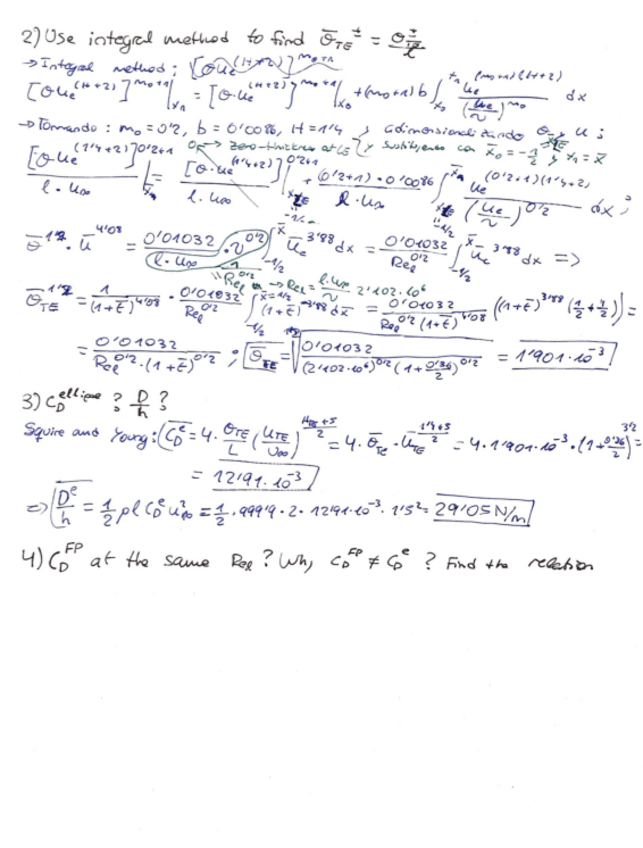 2) Use integral method to find θ̄_TE^± = θ^±_TE / l
→ Integral method: [θ u_e^(H+2)]^(m₀+1)
[θ u_e^(H+2)]^(m₀+1)|_x₁ = [θ·u_e^(H+2)]^(m₀+1)|_x₀ + (m₀+1) b ∫_x₀^x₁ u_e^((m₀+1)(H+2)) / (u_e/ν)^m₀ dx
→ Tomando: m₀ = 0'2, b = 0'0086, H = 1'4 y adimensionalizando θ y u;
0 → zero-thickness at LE y sustituyendo con x̄₀ = -1/2 y x₁ = x̄
[θ u_e^(1'4+2)]^(0'2+1) / l·u∞ |_x₁ = [θ·u_e^(1'4+2)]^(0'2+1) / l·u∞ | + (0'2+1)·0'0086 / l·u∞ ∫ u_e^((0'2+1)(1'4+2)) / (u_e/ν)^0'2 dx;
θ̄^1'2 · ū^4'08 = 0'01032 / (l·u∞) · ν^0'2 ∫_-1/2^x̄ ū_e^3'88 dx = 0'01032 / Re_l^0'2 ∫_-1/2^x̄ ū_e^3'88 dx ⇒
1 / Re_l^0'2 → Re_l = l·u∞ / ν = 2'102·10⁶
θ̄_TE^1'2 = 1 / (1+t̄)^4'08 · 0'01032 / Re_l^0'2 ∫_-1/2^x̄=1/2 (1+t̄)^3'88 dx̄ = 0'01032 / (Re_l^0'2 (1+t̄)^4'08) ((1+t̄)^3'88 (1/2 + 1/2)) =
= 0'01032 / (Re_l^0'2 · (1+t̄)^0'2 ; θ̄_TE = ^1'2√(0'01032 / ((2'102·10⁶)^0'2 (1+0'36/2)^0'2)) = 1'901·10⁻³
3) C_D^ellipse ? D/h ?
Squire and Young: C_D^e = 4· θ_TE/L (u_TE/u∞)^((H_TE+5)/2) = 4·θ̄_TE·ū_TE^((1'4+5)/2) = 4·1'901·10⁻³·(1+0'36/2)^3'2 =
= 12'91·10⁻³
⇒ D^e/h = 1/2 ρ l C_D^e u²∞ = 1/2 · 999'9 · 2 · 12'91·10⁻³ · 1'5² = 29'05 N/m
4) C_D^FP at the same Re_l? Why C_D^FP ≠ C_D^e ? Find the relation